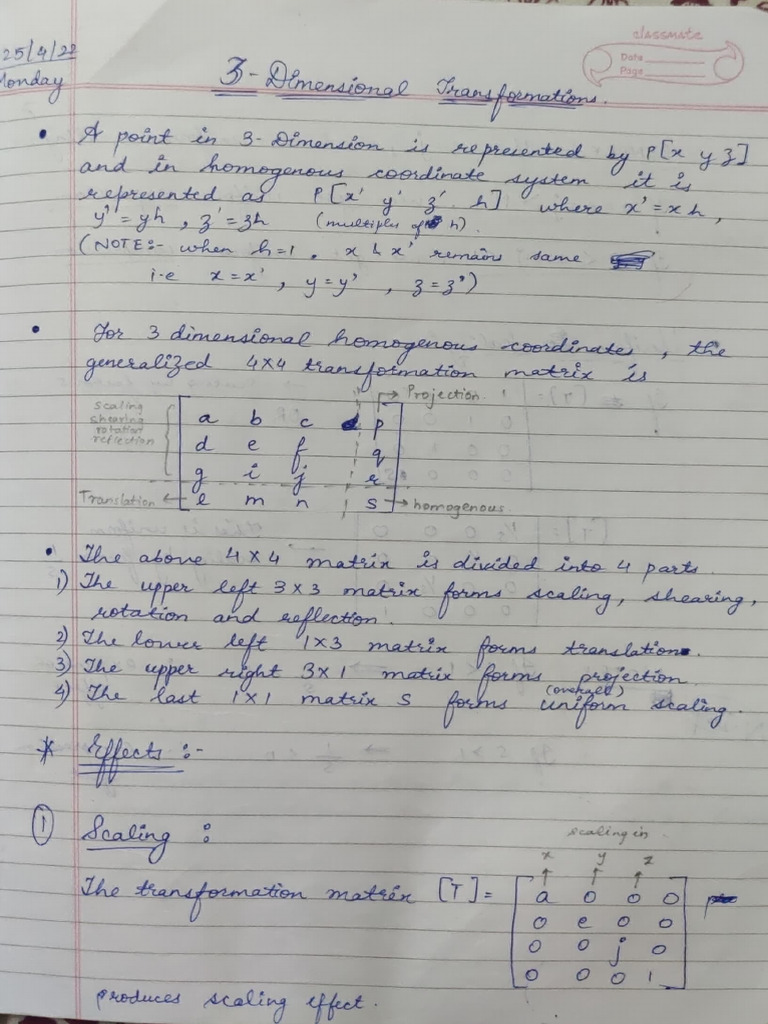 classmate
Date
Page
25/4/22
Monday
3-Dimensional Transformations.
• A point in 3-Dimension is represented by P[x y z]
and in homogenous coordinate system it is
represented as P[x' y' z' h] where x' = xh,
y' = yh , z' = zh (multiples of h).
(NOTE:- when h=1 , x & x' remains same
i.e x = x' , y = y' , z = z')
• For 3 dimensional homogenous coordinates, the
generalized 4x4 transformation matrix is
scaling
shearing
rotation
reflection
→ Projection
a b c p
d e f q
g i j r
Translation ← l m n s → homogenous
• The above 4x4 matrix is divided into 4 parts.
1) The upper left 3x3 matrix forms scaling, shearing,
rotation and reflection.
2) The lower left 1x3 matrix forms translation.
3) The upper right 3x1 matrix forms projection.
4) The last 1x1 matrix S forms (overall) uniform scaling.
* Effects :-
① Scaling :
scaling in
x y z
The transformation matrix [T] =
a 0 0 0
0 e 0 0
0 0 j 0
0 0 0 1
produces scaling effect.